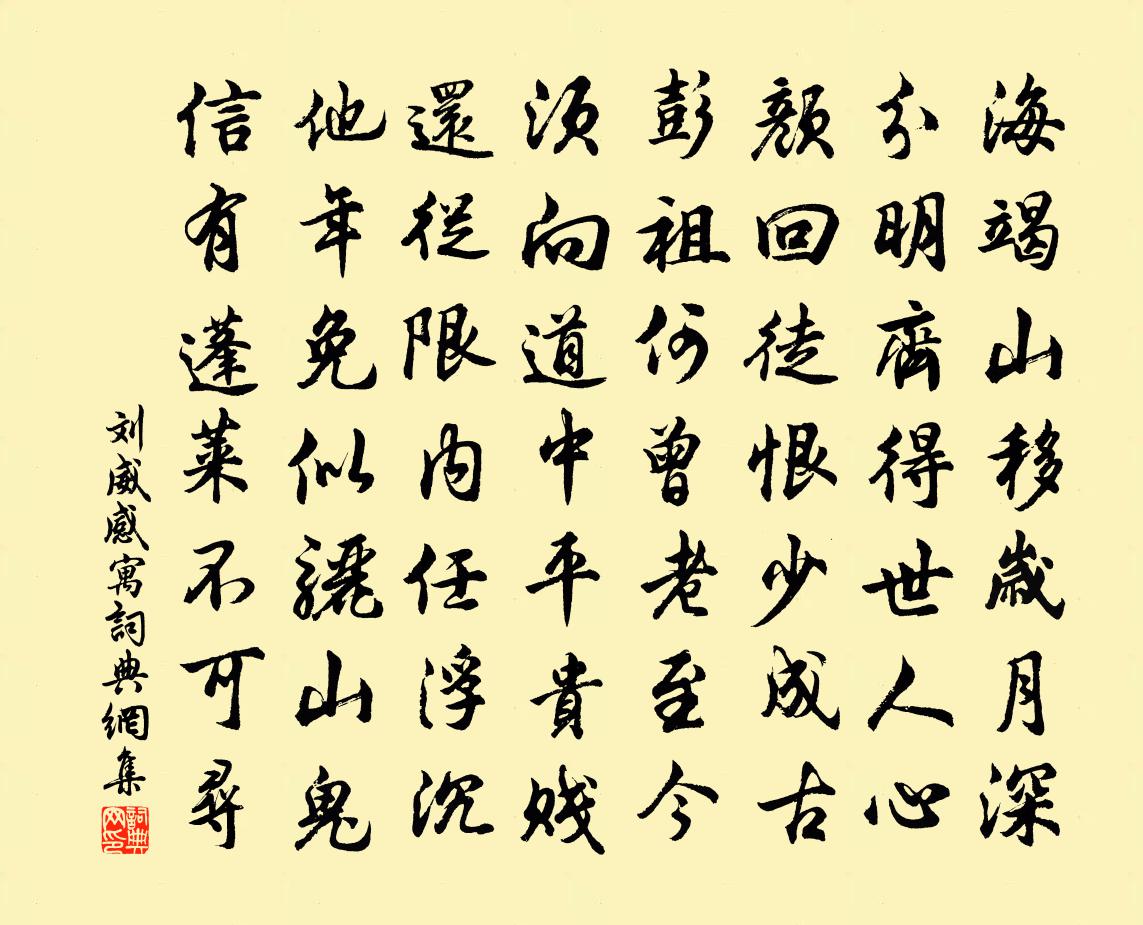 海竭山移歲月深
分明齊得世人心
顏回徒恨少成古
彭祖何曾老至今
須向道中平貴賤
還從限内任浮沉
他年免似驪山鬼
信有蓬萊不可尋
刘威感寓詞典網集
詞典网印